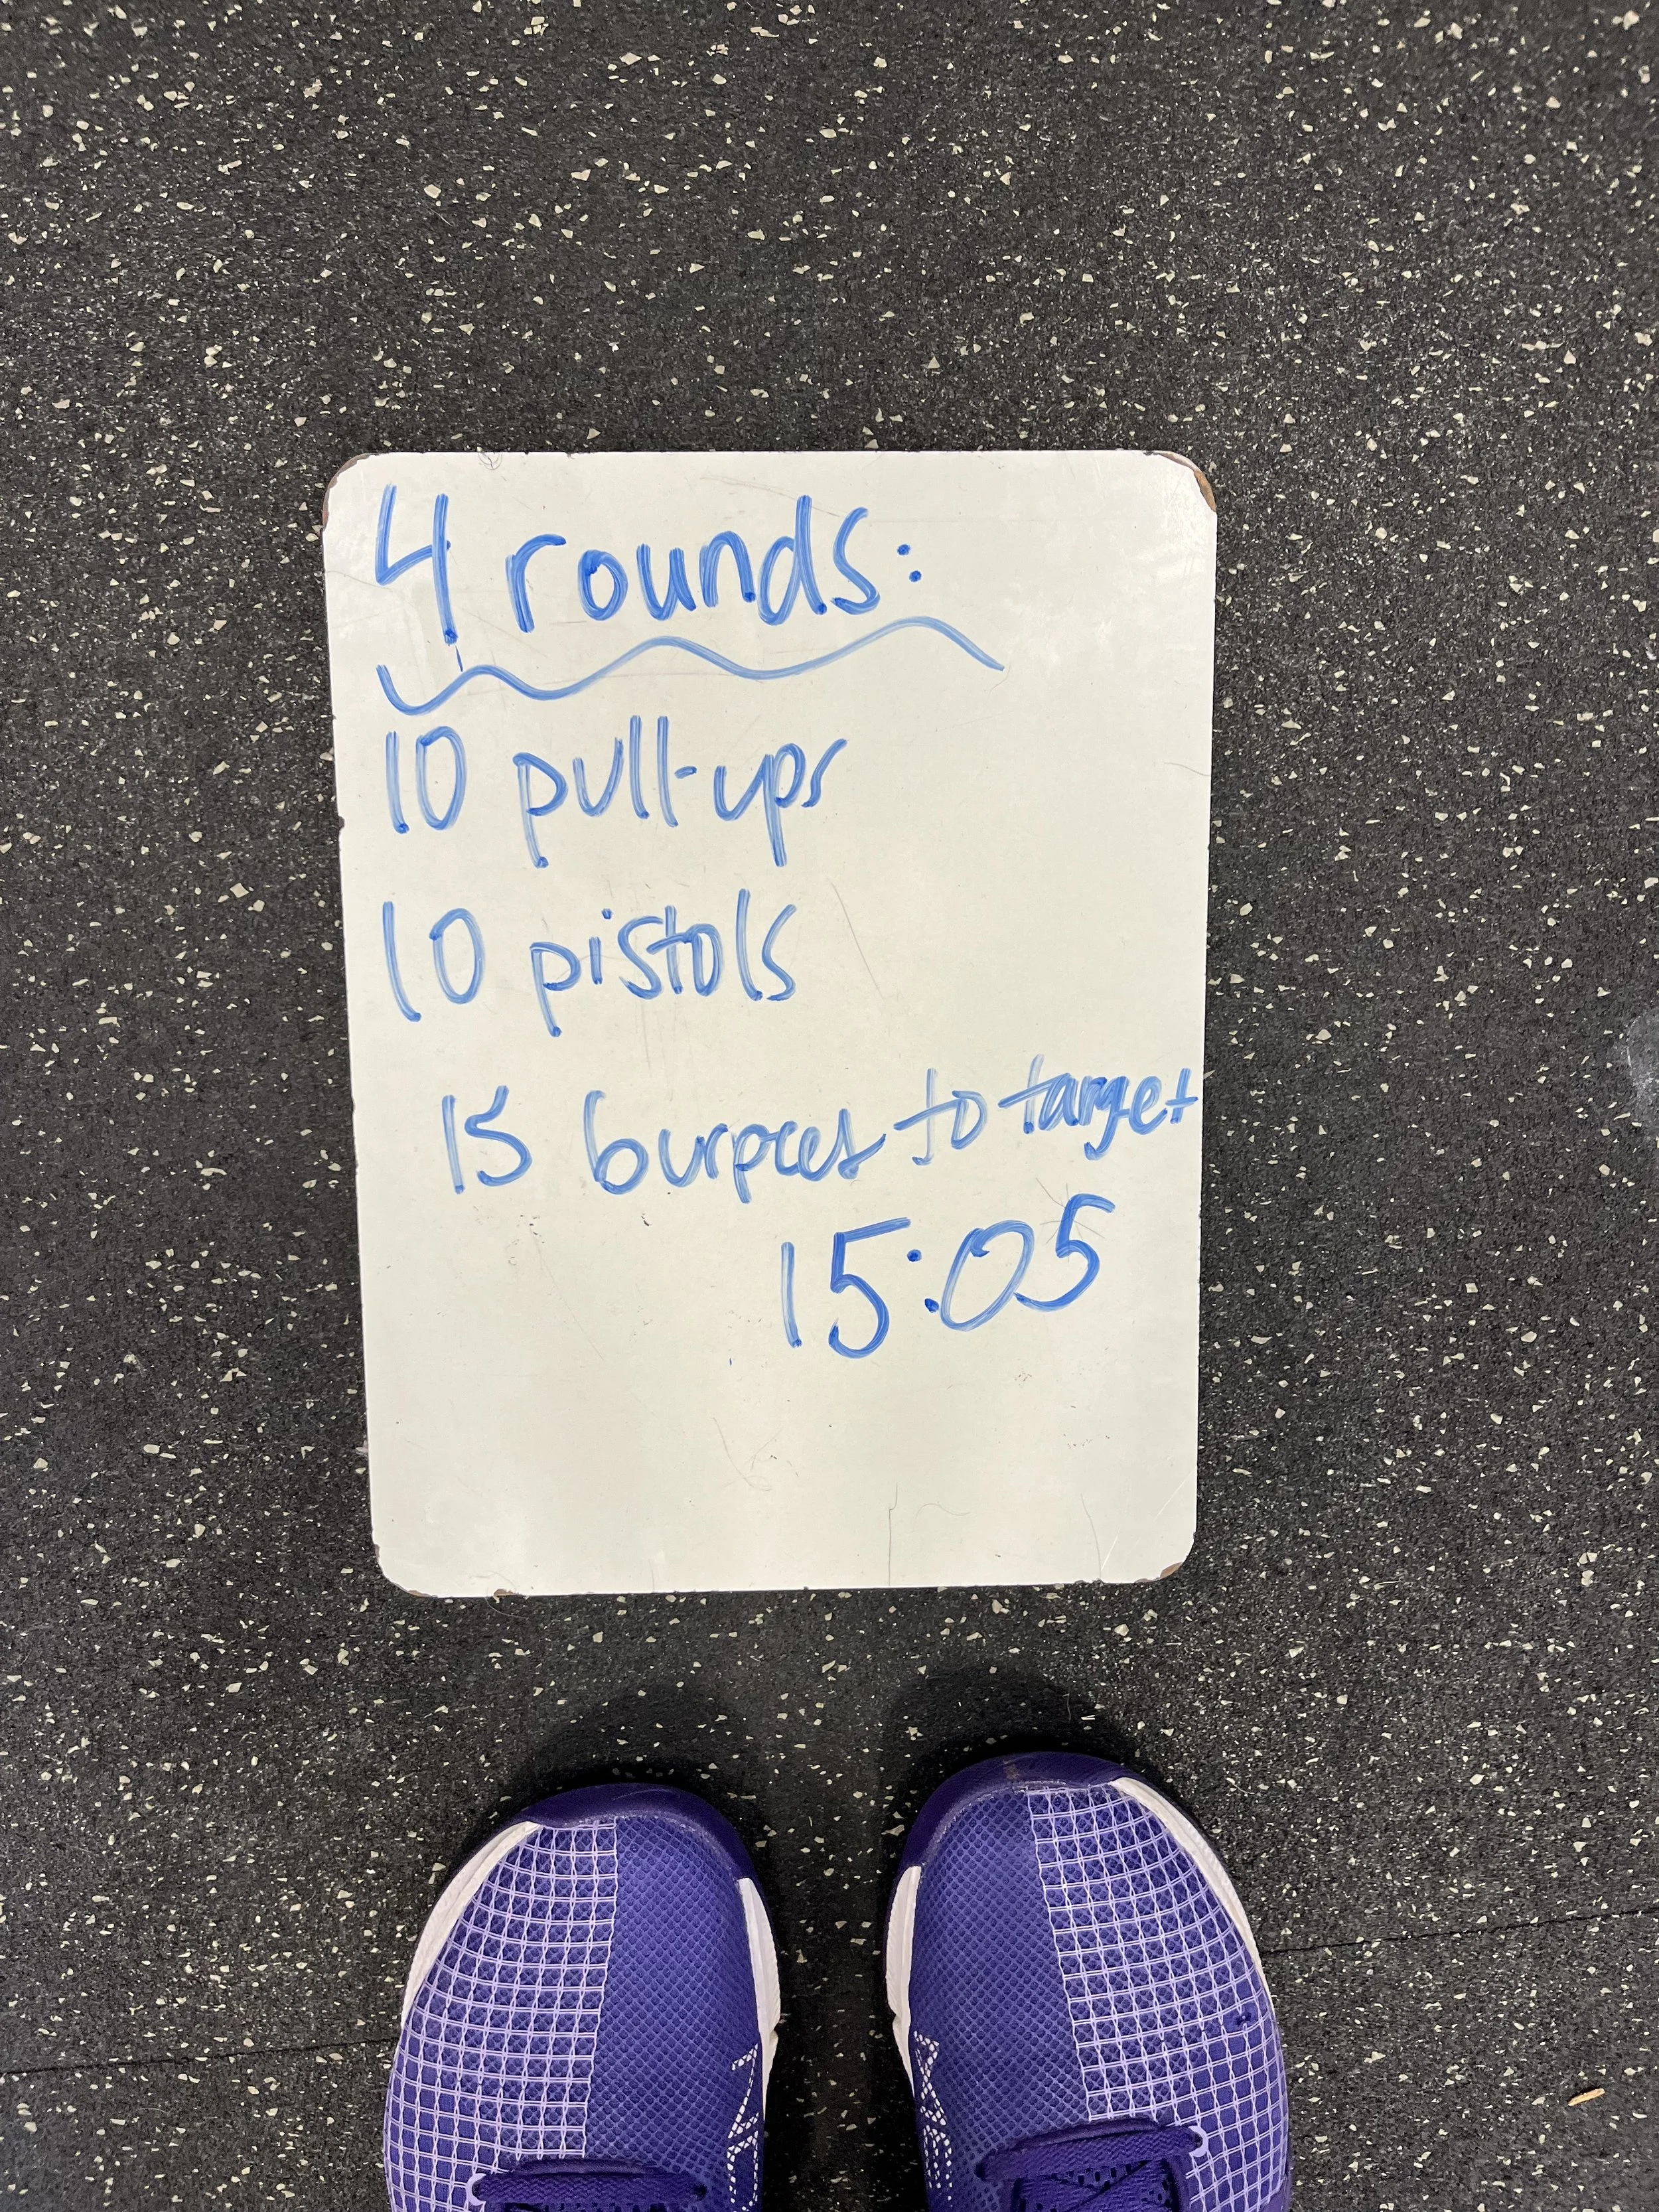 4 rounds:
10 pull-ups
10 pistols
15 burpees to target
15:05